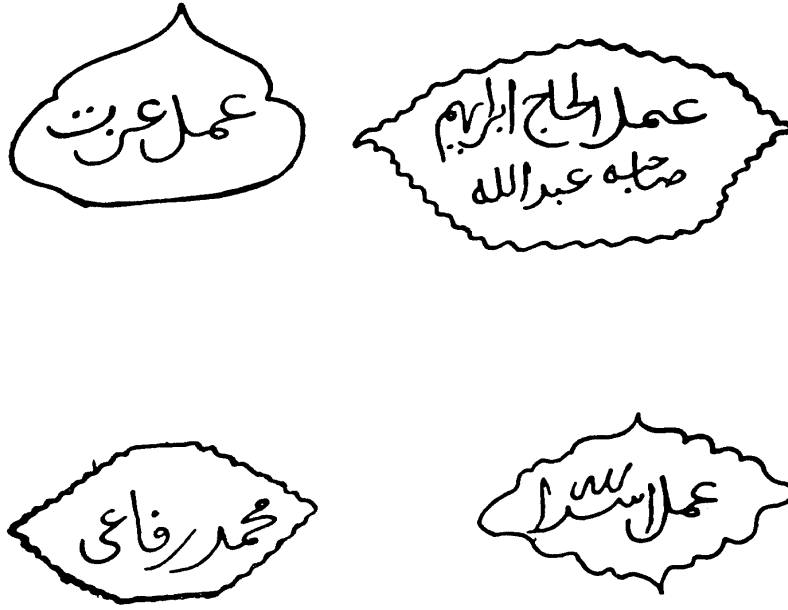 عمل عزت
عمل الحاج ابراهيم
صاحبه عبدالله
محمد رفاعى
عمل